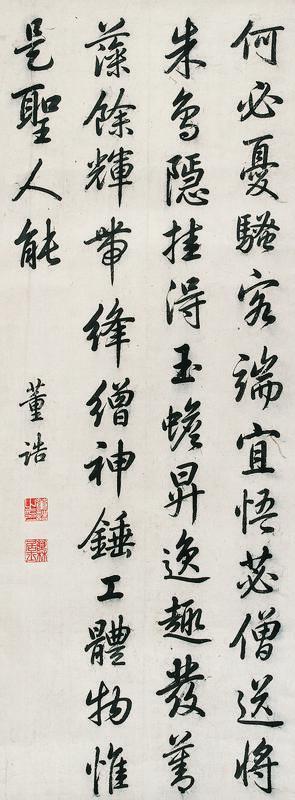 何必憂騷客端宜悟苾僧送將
朱鳥隱挂得玉蟾昇逸趣發
藻餘輝帶絳繒神錘工體物惟
是聖人能
董誥